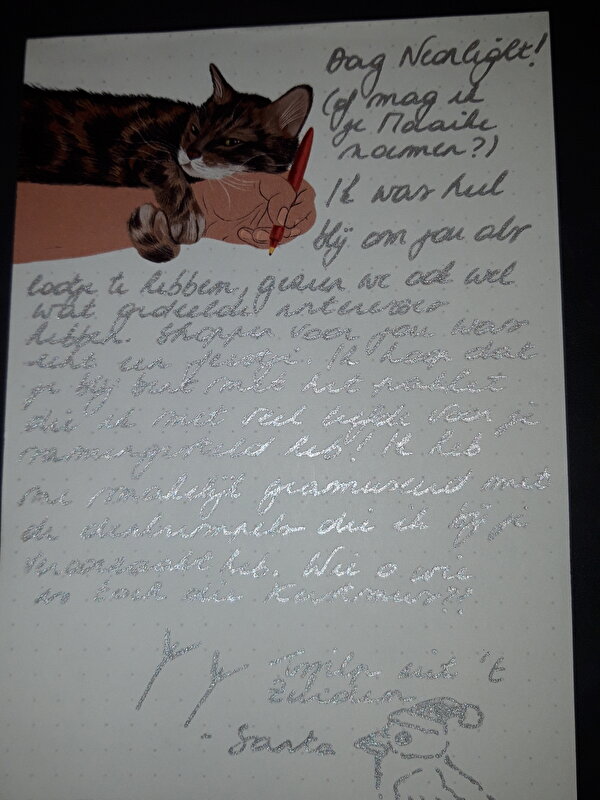 Dag Neonlight!
(of mag ik
je Maaike
noemen?)
Ik was heel
blij om jou als
lootje te hebben, gezien we ook wel
wat gedeelde interesses
hebben. Shoppen voor jou was
echt een feestje. Ik hoop dat
je blij bent met het pakket
die ik met veel liefde voor je
samengesteld heb! Ik heb
me makelijk geamuseerd met
de denkrimpels die ik bij je
veroorzaakt heb. Wie o wie
is toch die Kerstmus??
- uit 't
Zuiden
- Santa